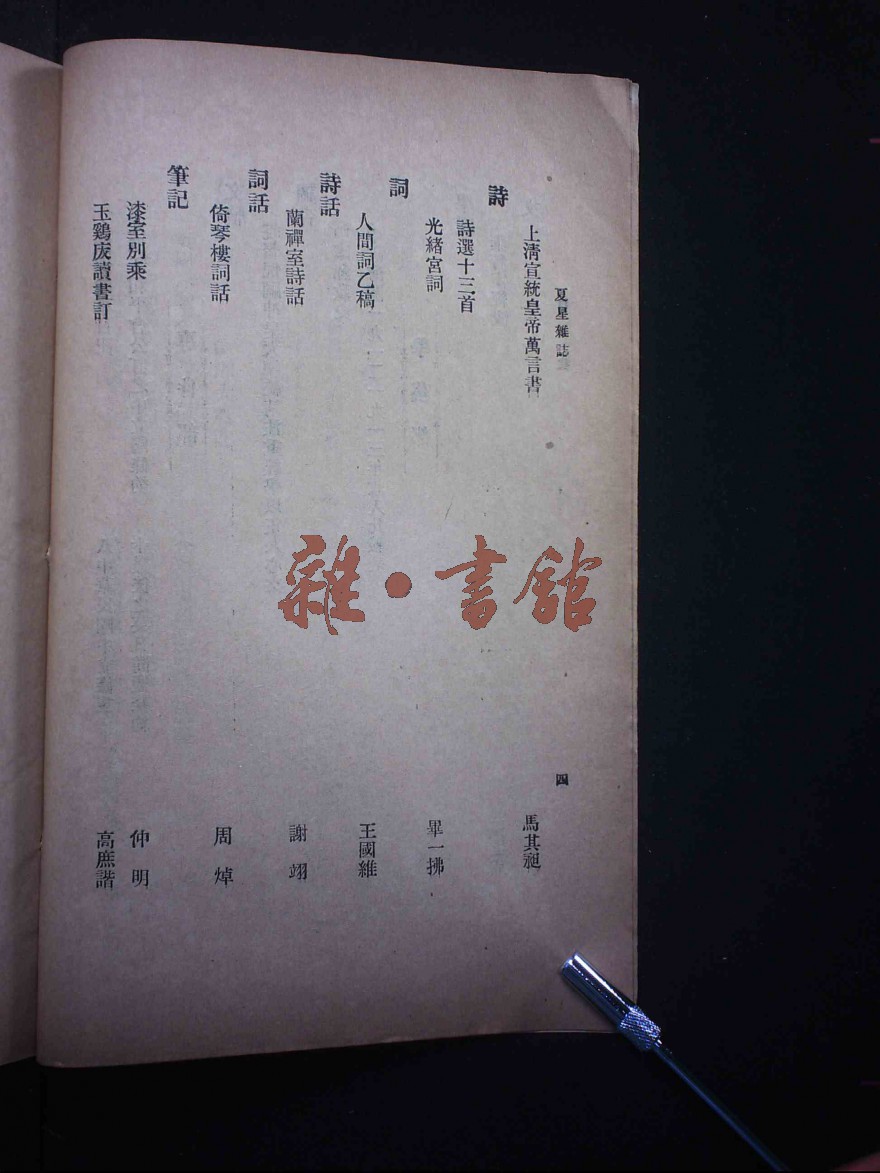 夏星雜誌
四
上淸宣統皇帝萬言書 馬其昶
詩
詩選十三首
光緒宮詞 畢一拂
詞
人間詞乙稿 王國維
詩話
蘭禪室詩話 謝翊
詞話
倚琴樓詞話 周焯
筆記
漆室別乘 仲明
玉鷄庋讀書訂 高庶諧
雜·書館